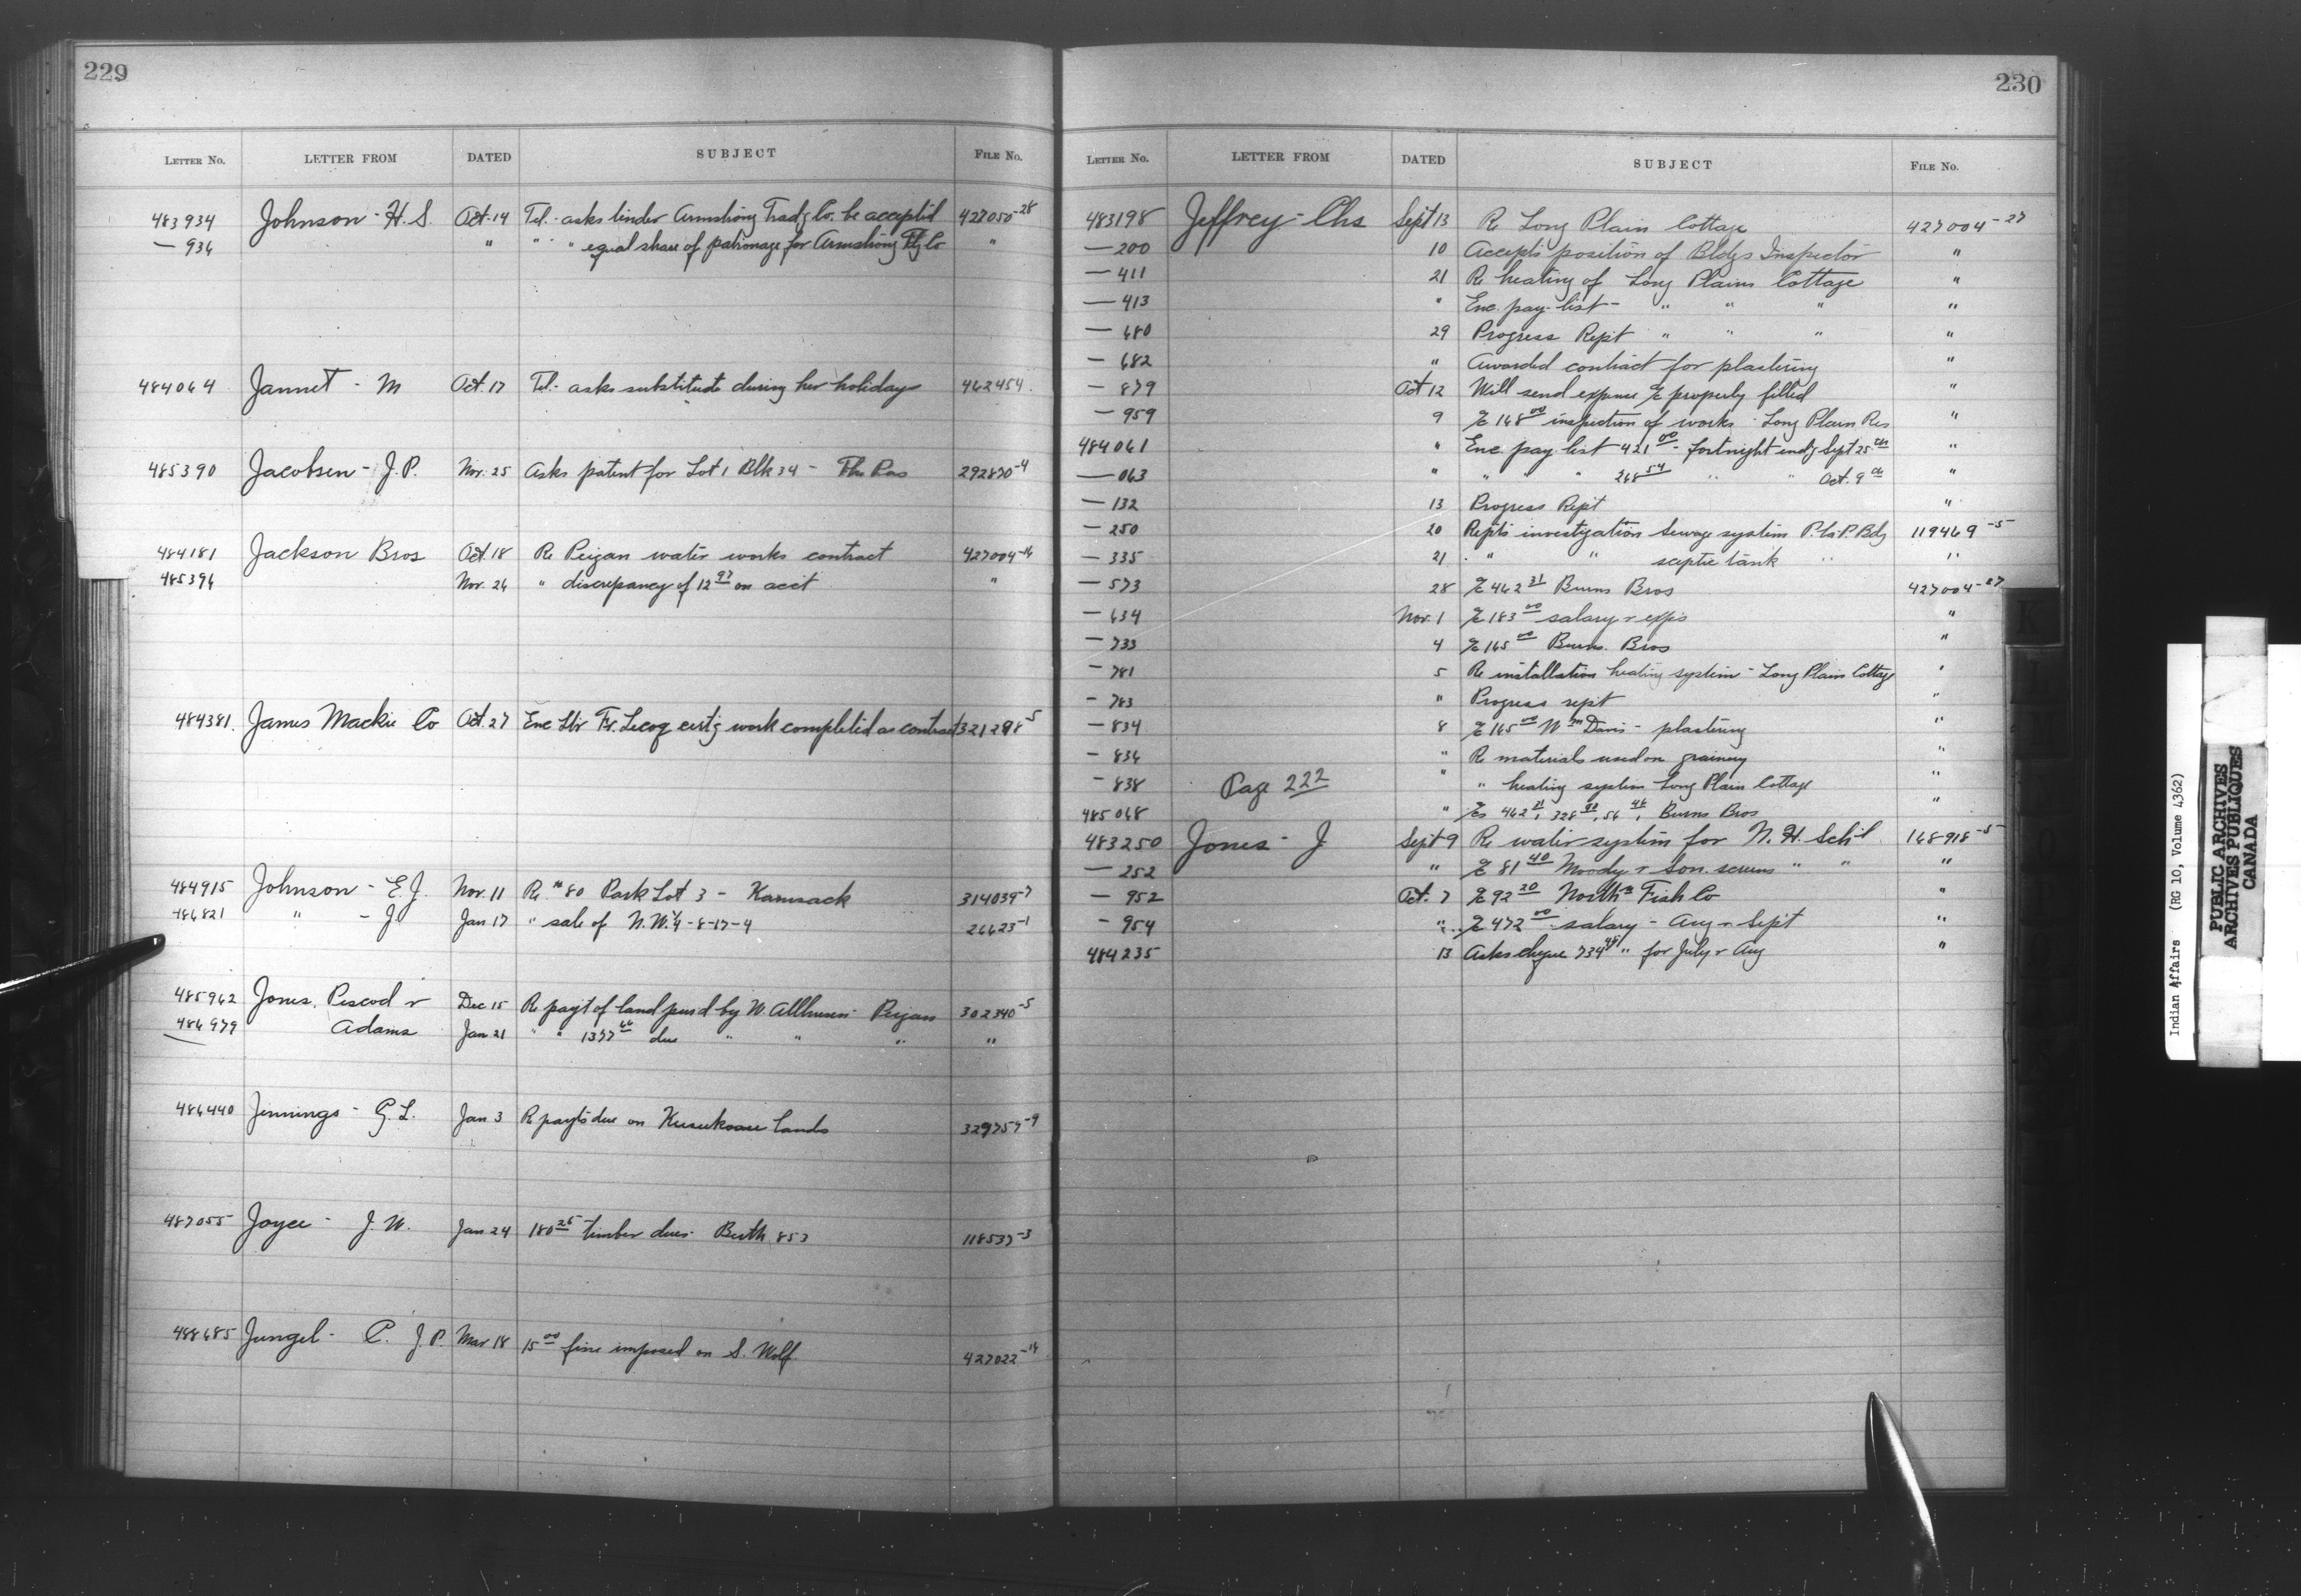 229
LETTER No. LETTER FROM DATED SUBJECT FILE No.
483934 Johnson - H. S. Oct. 14 Tel - asks tinder Armstrong Trad'g Co. be accepted 427050-28
— 936 " " " equal share of patronage for Armstrong Co "
484064 Jannet - M Oct. 17 Tel - asks substitute during her holidays 462454
485390 Jacobsen - J. P. Nov. 25 Asks patent for Lot 1 Blk 34 - The Pas 292870-4
484181 Jackson Bros Oct. 18 Re Peigan water works contract 427004-14
485396 Nov. 26 " discrepancy of 12 97 on acct "
484381. James Mackie Co Oct. 27 Enc ltr Fr. Lecoq cert'g work completed as contract 321298-5
484915 Johnson - E. J. Nov. 11 Re 80 Park Lot 3 - Kamsack 314039-7
486821 " - J Jan 17 " sale of N.W.¼-8-17-4 26623-1
485962 Jones, Pescod & Dec 15 Re pay't of land pur'd by W. Allhusen Peigan 302340-5
486979 Adams Jan 21 " " 1377 due " " " "
486440 Jennings - G. L. Jan 3 Re pay'ts due on lands 329757-9
487055 Joyce - J. W. Jan 24 180 25 timber dues - Berth 853 118537-3
488685 Jungel - C. J. P. Mar 18 15 00 fine imposed on S. Wolf 427022-14
230
LETTER No. LETTER FROM DATED SUBJECT FILE No.
483198 Jeffrey - Chs Sept 13 Re Long Plain Cottage 427004-27
— 200 10 Accepts position of Bldgs Inspector "
— 411 21 Re heating of Long Plains Cottage "
— 413 " Enc. pay-list - " " " "
— 680 29 Progress Rept " " " "
— 682 " Awarded contract for plastering "
— 879 Oct 12 Will send expense a/c properly filled "
— 959 9 a/c 168 00 inspection of works - Long Plain Res "
484061 " Enc pay list 421 00 - fortnight end'g Sept 25 th "
— 063 " " " 268 54 " " Oct. 9 th "
— 132 13 Progress Rept "
— 250 20 Rep'ts investigation sewage system P. la P. Bdg 119469-5
— 335 21 " " sceptic tank " "
— 573 28 a/c 462 31 Burns Bros 427004-27
— 634 Nov. 1 a/c 183 00 salary & exps "
— 733 4 a/c 165 00 Burns Bros "
— 781 5 Re installation heating system - Long Plain Cottage "
— 783 " Progress rept "
— 834 8 a/c 165 00 Wm Davis - plastering "
— 836 " Re materials used on grainery "
— 838 Page 222 " " heating system Long Plain Cottage "
485068 " a/cs 462 31, 328 90, 56 46, Burns Bros "
483250 Jones - J Sept 9 Re water system for N. H. Sch'l 168918-5
— 252 " a/c 81 40 Moody & Son. screens " " "
— 952 Oct. 7 a/c 92 20 North'n Fish Co "
— 954 " a/c 472 00 salary - Aug & Sept "
484235 13 Asks cheque 734 45 " for July & Aug "
Indian Affairs (RG 10, Volume 4362)
PUBLIC ARCHIVES
ARCHIVES PUBLIQUES
CANADA